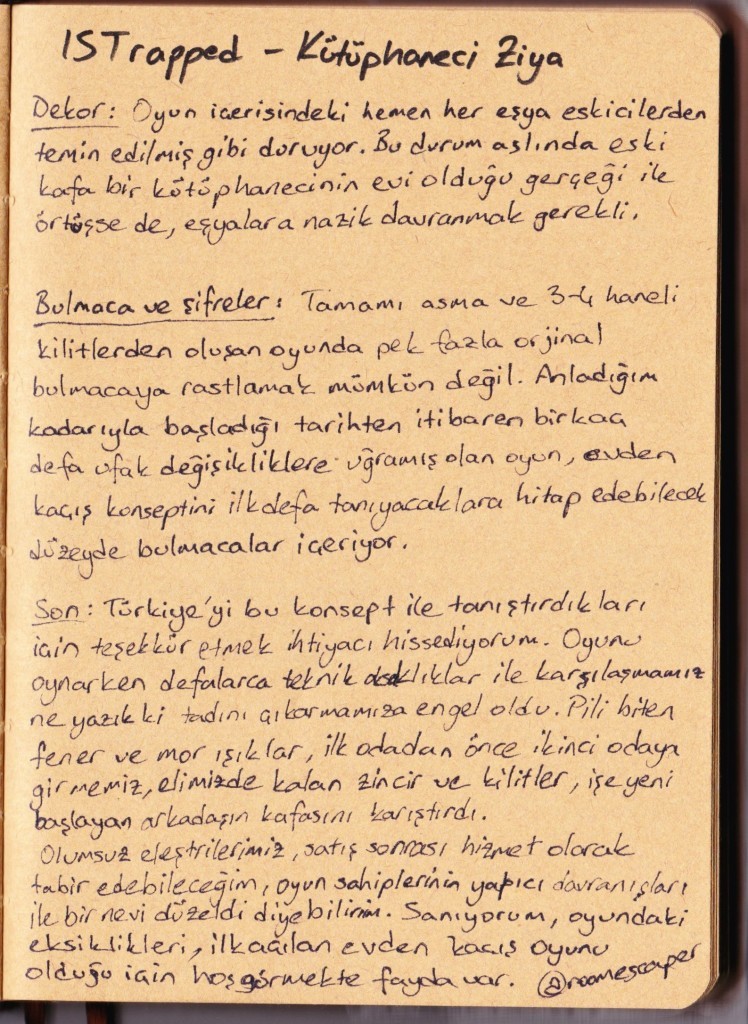 ISTrapped - Kütüphaneci Ziya
Dekor: Oyun içerisindeki hemen her eşya eskicilerden
temin edilmiş gibi duruyor. Bu durum aslında eski
kafa bir kütüphanecinin evi olduğu gerçeği ile
örtüşse de, eşyalara nazik davranmak gerekli.
Bulmaca ve şifreler: Tamamı asma ve 3-4 haneli
kilitlerden oluşan oyunda pek fazla orjinal
bulmacaya rastlamak mümkün değil. Anladığım
kadarıyla başladığı tarihten itibaren birkaç
defa ufak değişikliklere uğramış olan oyun, evden
kaçış konseptini ilk defa tanıyacaklara hitap edebilecek
düzeyde bulmacalar içeriyor.
Son: Türkiye'yi bu konsept ile tanıştırdıkları
için teşekkür etmek ihtiyacı hissediyorum. Oyunu
oynarken defalarca teknik ile karşılaşmamız
ne yazık ki tadını çıkarmamıza engel oldu. Pili biten
fener ve mor ışıklar, ilk odadan önce ikinci odaya
girmemiz, elimizde kalan zincir ve kilitler, işe yeni
başlayan arkadaşın kafasını karıştırdı.
Olumsuz eleştrilerimiz, satış sonrası hizmet olarak
tabir edebileceğim, oyun sahiplerinin yapıcı davranışları
ile bir nevi düzeldi diyebilirim. Sanıyorum, oyundaki
eksiklikleri, ilk açılan evden kaçış oyunu
olduğu için hoşgörmekte fayda var. @roomescaper